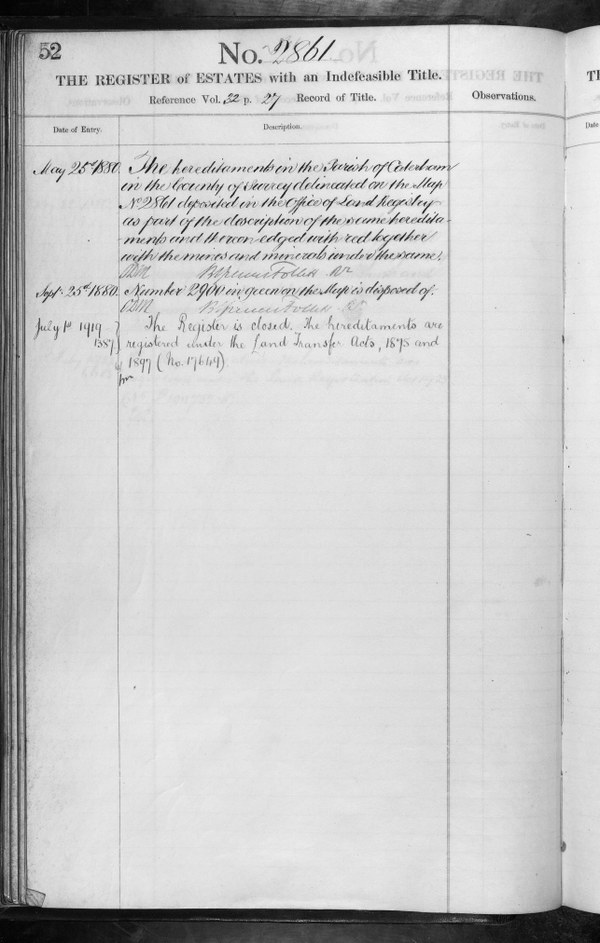 52
No. 2861
THE REGISTER of ESTATES with an Indefeasible Title.
Reference Vol. 32 p. 27 Record of Title.
Observations.
Date of Entry.
Description.
May 25th 1880. The hereditaments in the Parish of Caterham
in the County of Surrey delineated on the Map
No 2861 deposited in the Office of Land Registry
as part of the description of the same heredita-
ments and thereon edged with red together
with the mines and minerals under the same.
B Spencer Follett Rr
Sept. 25th 1880. Number 2900 in green on the Map is disposed of.
B Spencer Follett Rr
July 1st 1919 The Register is closed. The hereditaments are
1387 registered under the Land Transfer Acts, 1875 and
1897 (No. 17649)